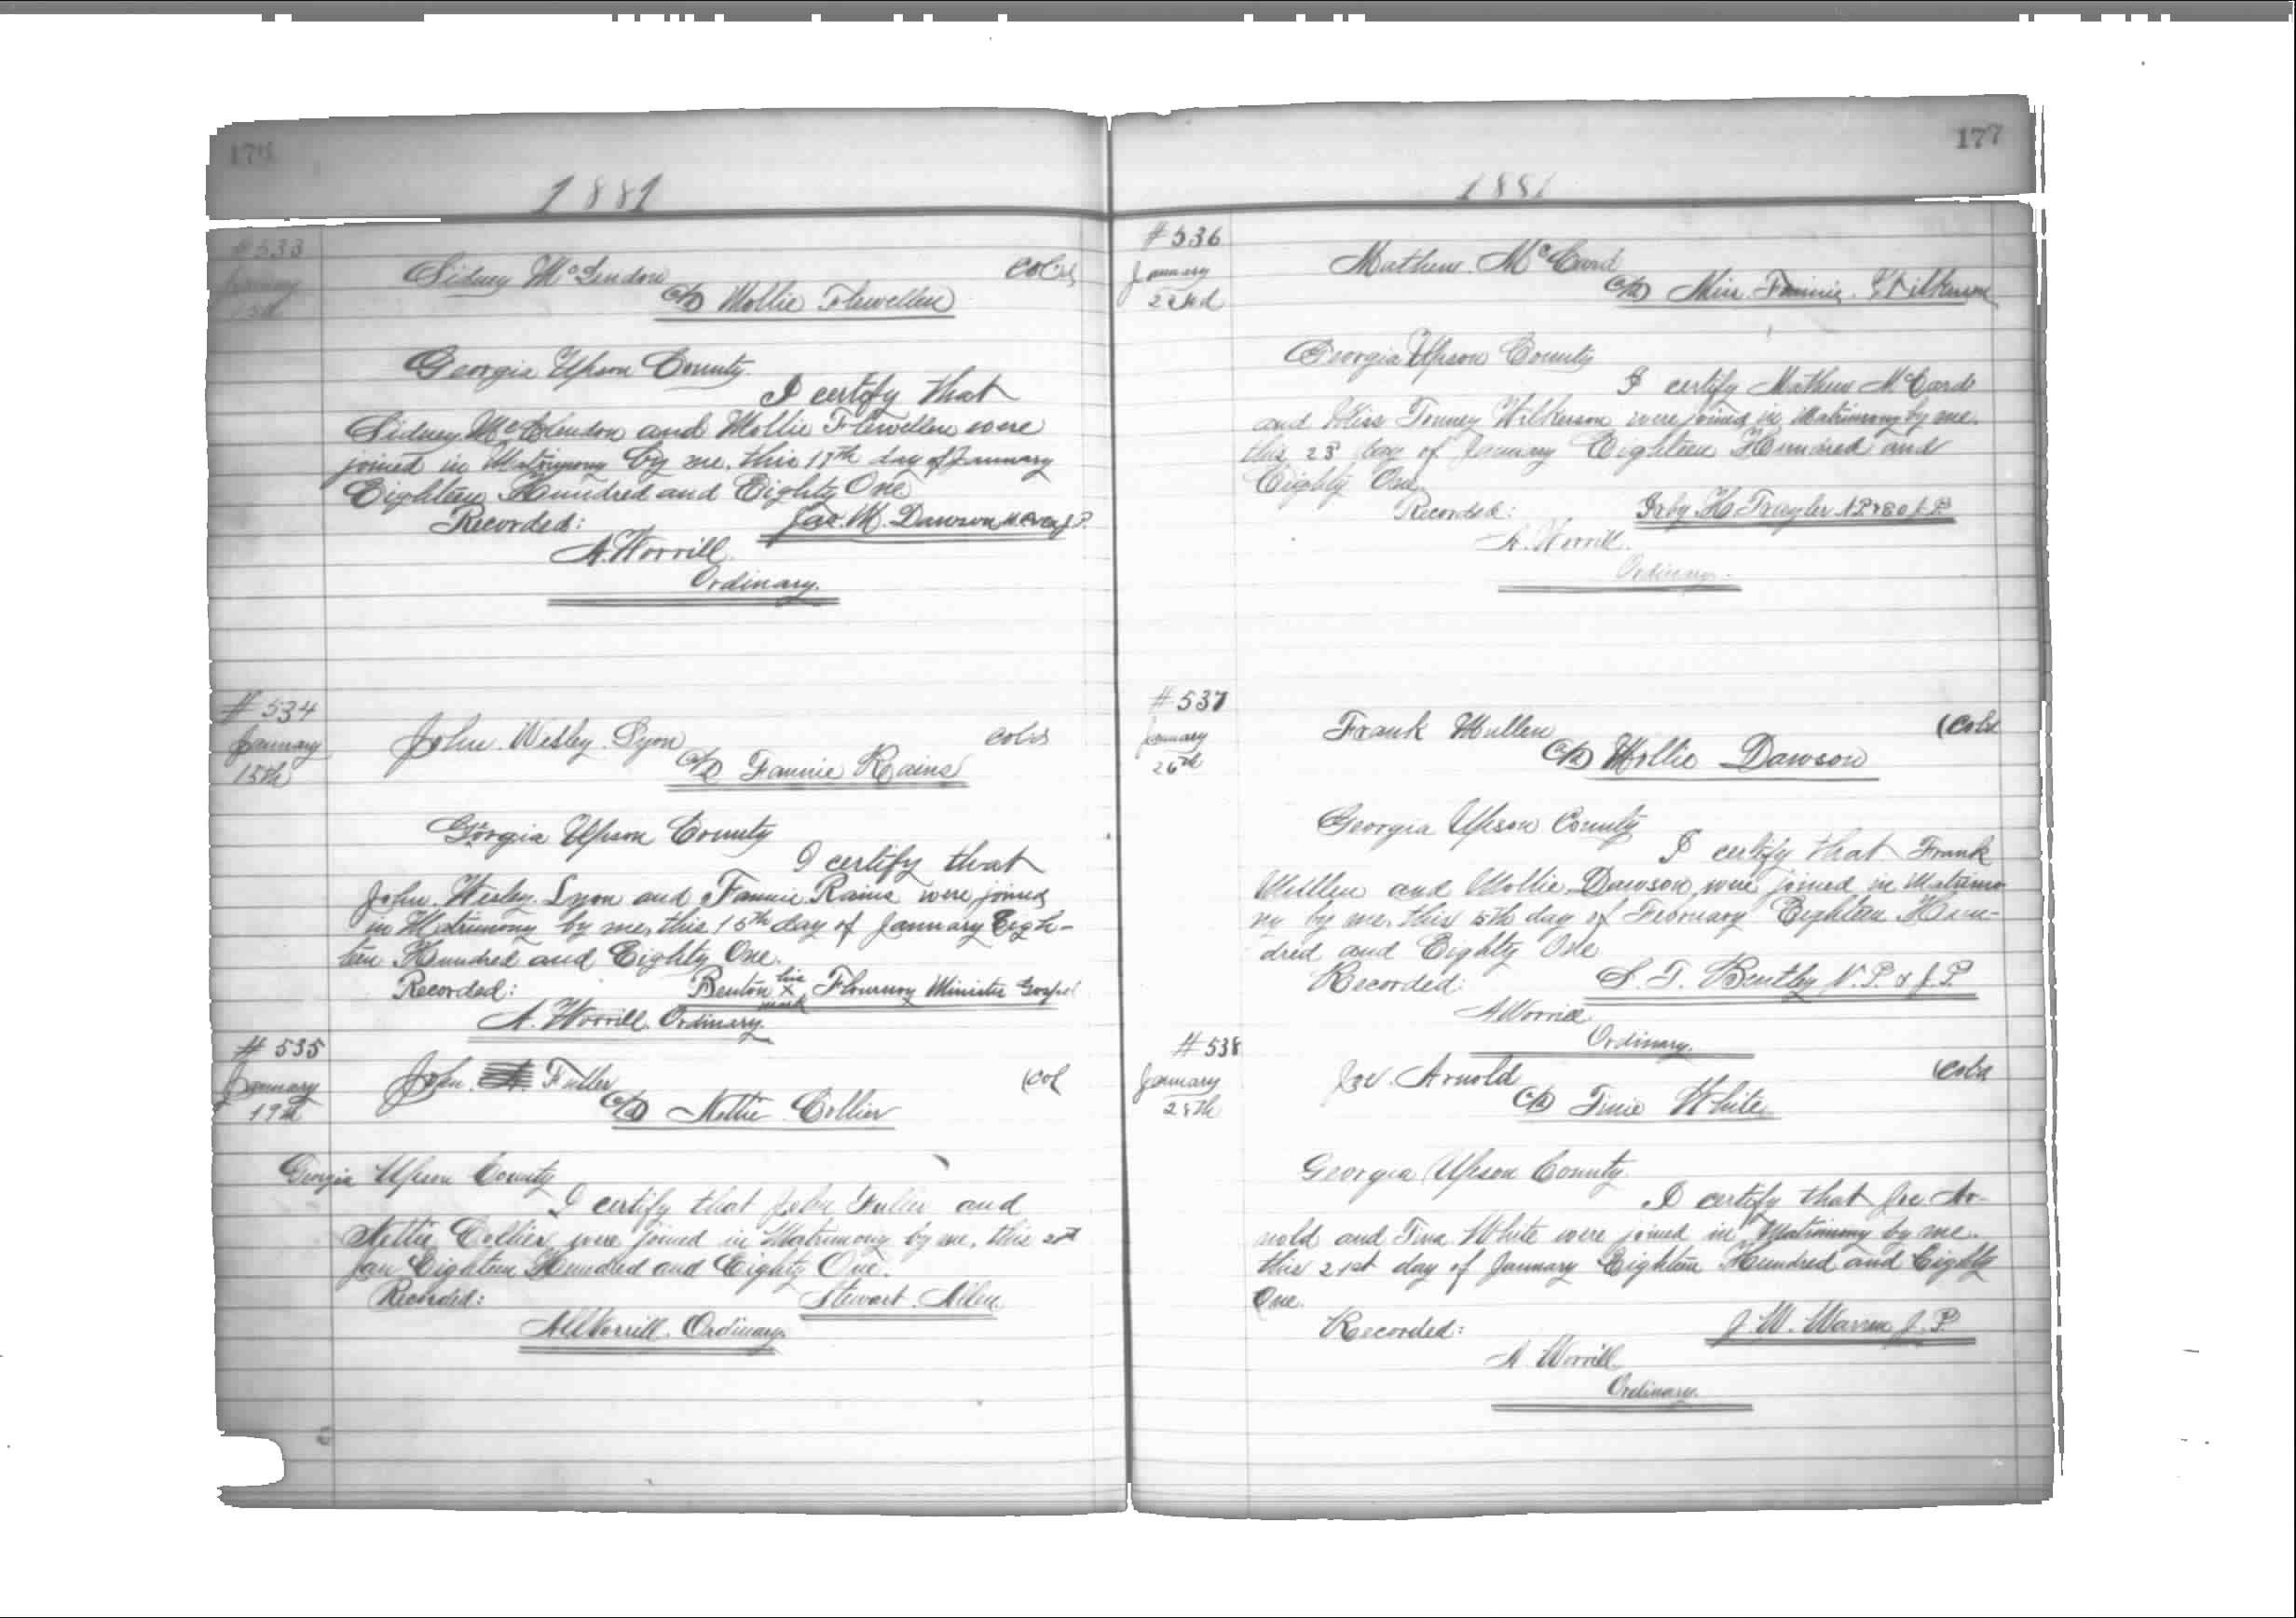 176
1881
#533
January
Sidney McLendon Col'd
C/D Mollie Flewellen
Georgia Upson County.
I certify that
Sidney McClendon and Mollie Flewellen were
joined in Matrimony by me, this 17th day of January
Eighteen Hundred and Eighty One
Recorded: Jas. M. Dawson J.P.
A. Worrill.
Ordinary.
#534
January
15th
John. Wesley. Lyon Col'd
C/D Fannie Rains
Georgia Upson County
I certify that
John. Wesley. Lyon and Fannie Rains were joined
in Matrimony by me, this 15th day of January Eigh-
teen Hundred and Eighty One.
Recorded: Benton his x mark Flournoy Minister Gospel
A. Worrill. Ordinary.
#535
January
19th
John. Fuller (Col
C/D Nettie Collier
Georgia Upson County
I certify that John Fuller and
Nettie Collier were joined in Matrimony by me, this 20th
Jan Eighteen Hundred and Eighty One.
Recorded: Stewart. Allen.
A Worrill. Ordinary.
177
1881
#536
January
Mathew. McCard
C/D Miss. Fannie. Wilkerson
Georgia Upson County
I certify Mathew McCard
and Miss Fanney Wilkerson were joined in Matrimony by me.
this 23 day of January Eighteen Hundred and
Eighty One.
Recorded: Irby H. Traylor N.P. & Ex O J.P.
A. Worrill.
Ordinary.
#537
January
26th
Frank Mullen (Cold
C/D Mollie Dawson
Georgia Upson County
I certify that Frank
Mullen and Mollie. Dawson were joined in Matrimo-
ny by me, this 5th day of February Eighteen Hun-
dred and Eighty One
Recorded: S. T. Bentley N.P. & J.P.
A Worrill.
Ordinary.
#538
January
28th
Joe. Arnold (Cold
C/D Tinie White
Georgia Upson County
I certify that Joe. Ar-
nold and Tina White were joined in Matrimony by me.
this 21st day of January Eighteen Hundred and Eighty
One.
Recorded: J. W. Warren J.P.
A. Worrill
Ordinary.